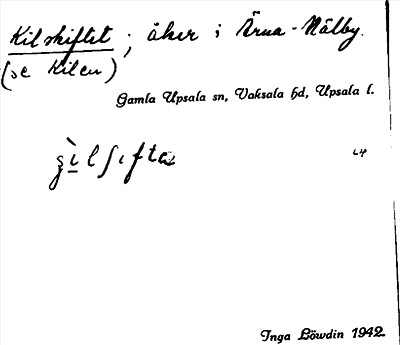 Kilskiftet ; åker i Ärna-Nälby.
(se Kilen)
Gamla Upsala sn, Vaksala hd, Upsala l.
Inga Löwdin 1942.